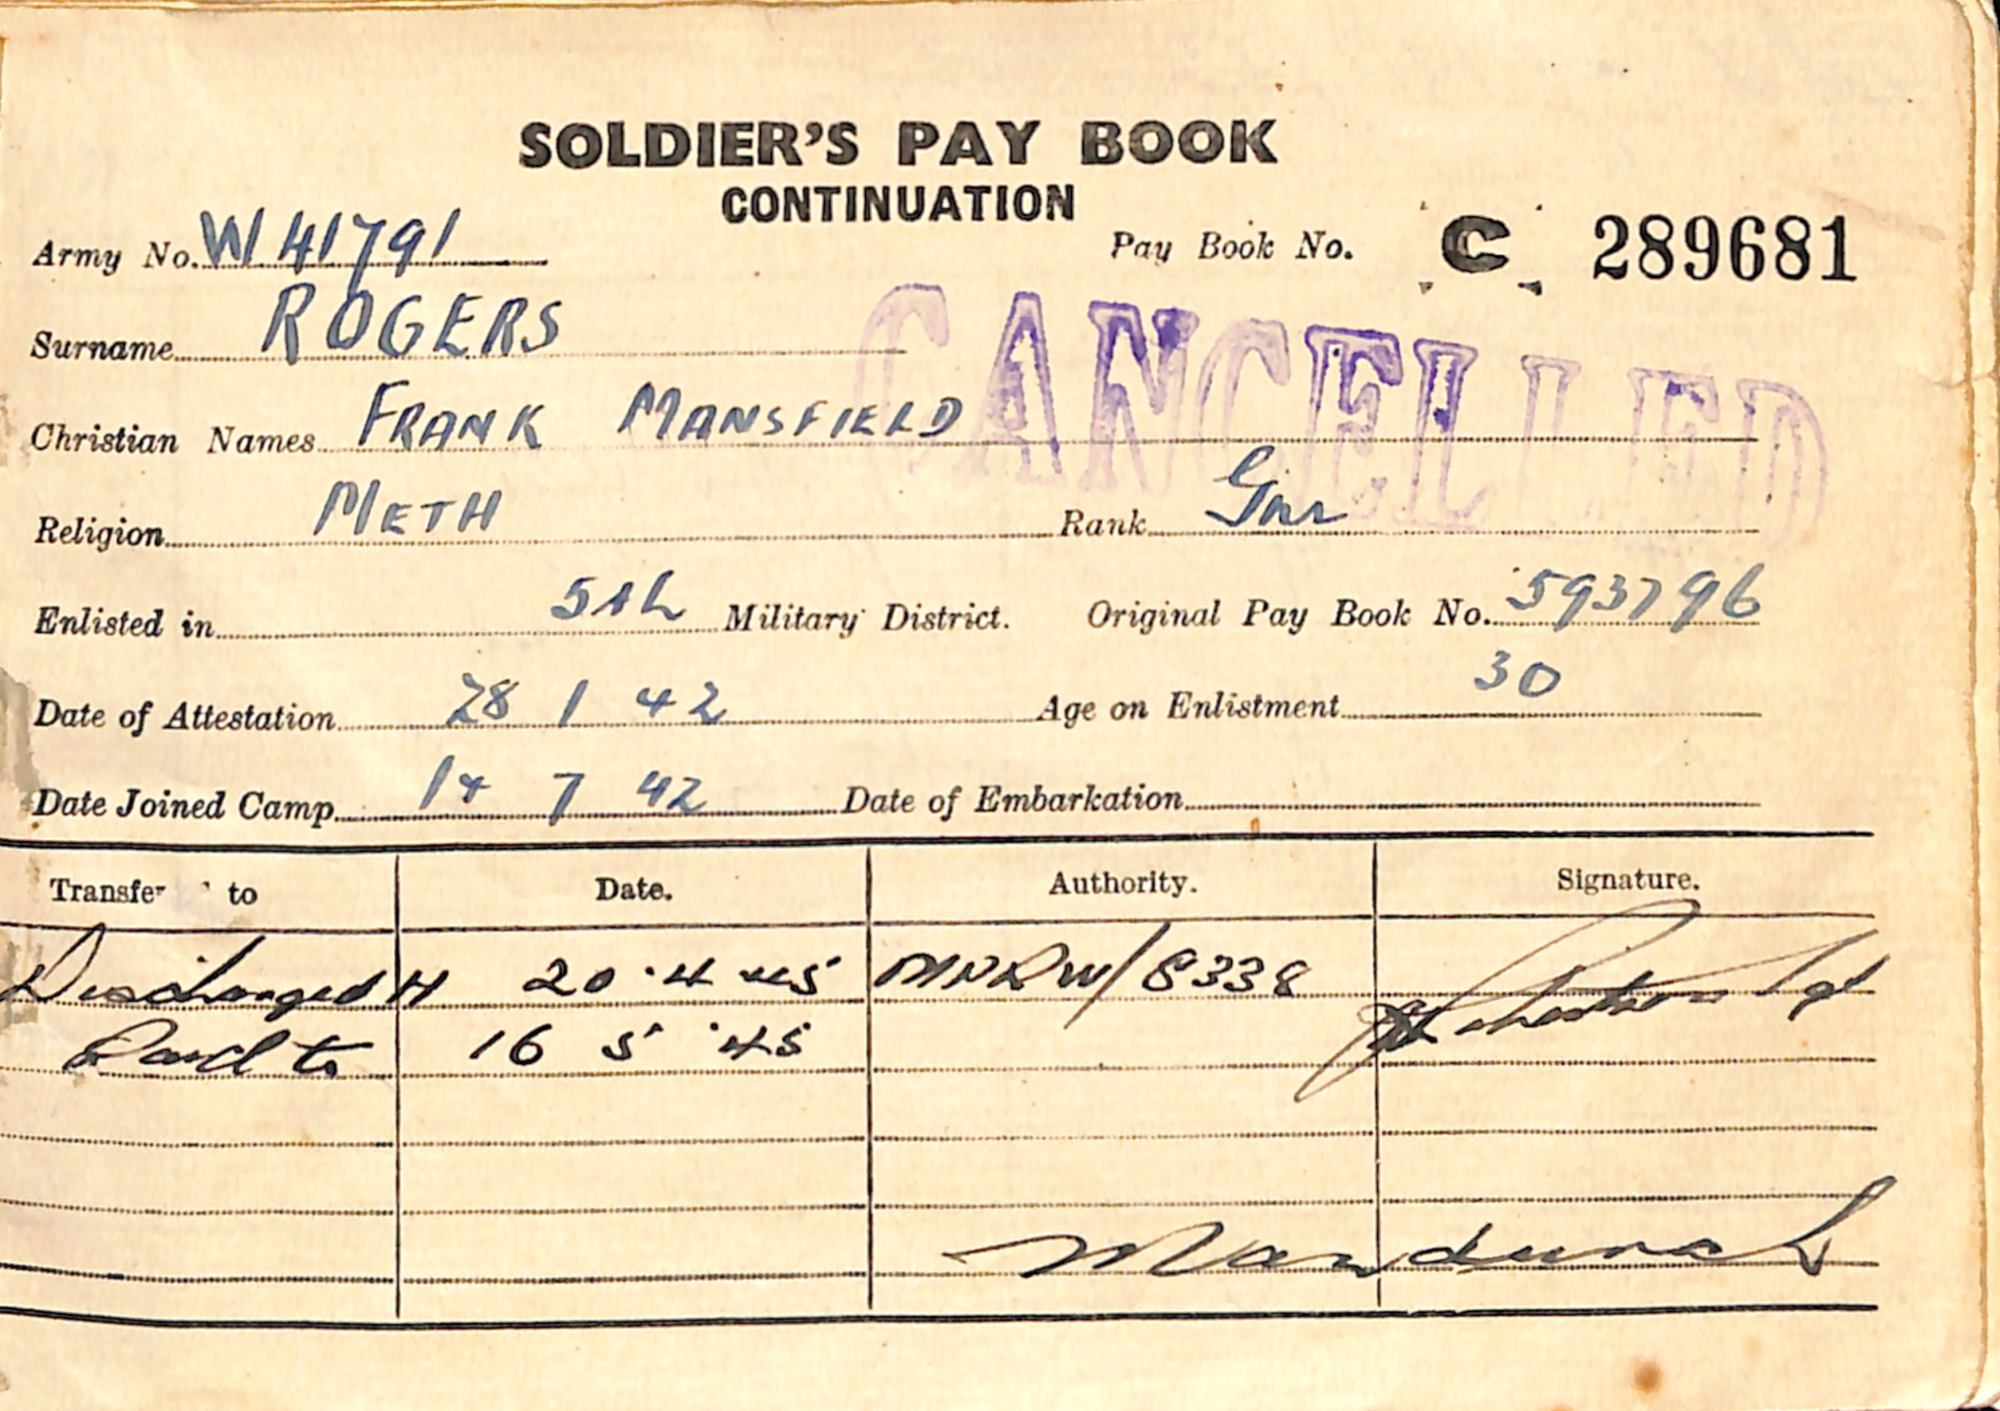 SOLDIER'S PAY BOOK
CONTINUATION
Army No. W41791 Pay Book No. C 289681
Surname ROGERS
CANCELLED
Christian Names FRANK MANSFIELD
Religion METH Rank Gnr
Enlisted in 5th Military District. Original Pay Book No. 593796
Date of Attestation 28 1 42 Age on Enlistment 30
Date Joined Camp 14 7 42 Date of Embarkation
Transfer to Date. Authority. Signature.
Discharged 20.4.45 /8338
Paid to 16 5 45
Mandurah